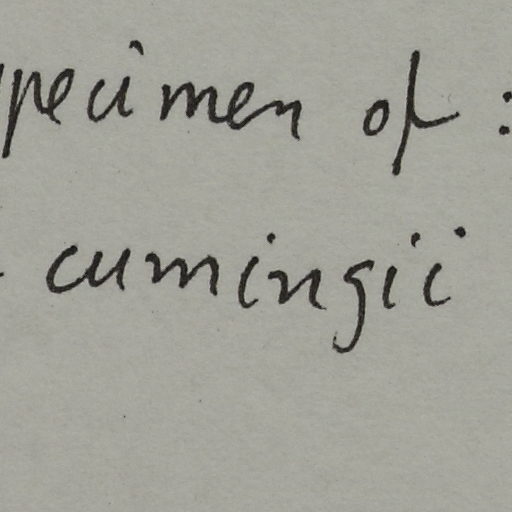 specimen of :
cumingii